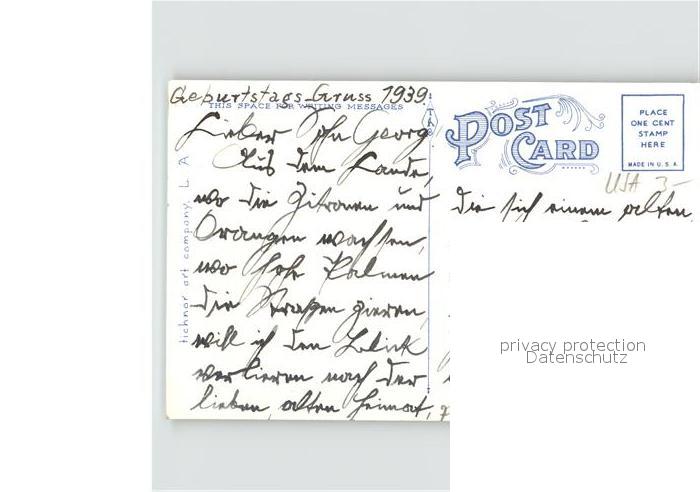 Geburtstags-Gruss 1939.
THIS SPACE FOR WRITING MESSAGES
Lieber Sohn Georg
Aus dem Lande,
wo die Zitronen und
Orangen wachsen,
wo hohe Palmen
die Strassen zieren,
will ich den Blick
verlieren nach der
lieben, alten Heimat,
tichnor art company, L A
POST CARD
PLACE
ONE CENT
STAMP
HERE
MADE IN U.S.A.
USA 3-
die sich einem alten
privacy protection
Datenschutz